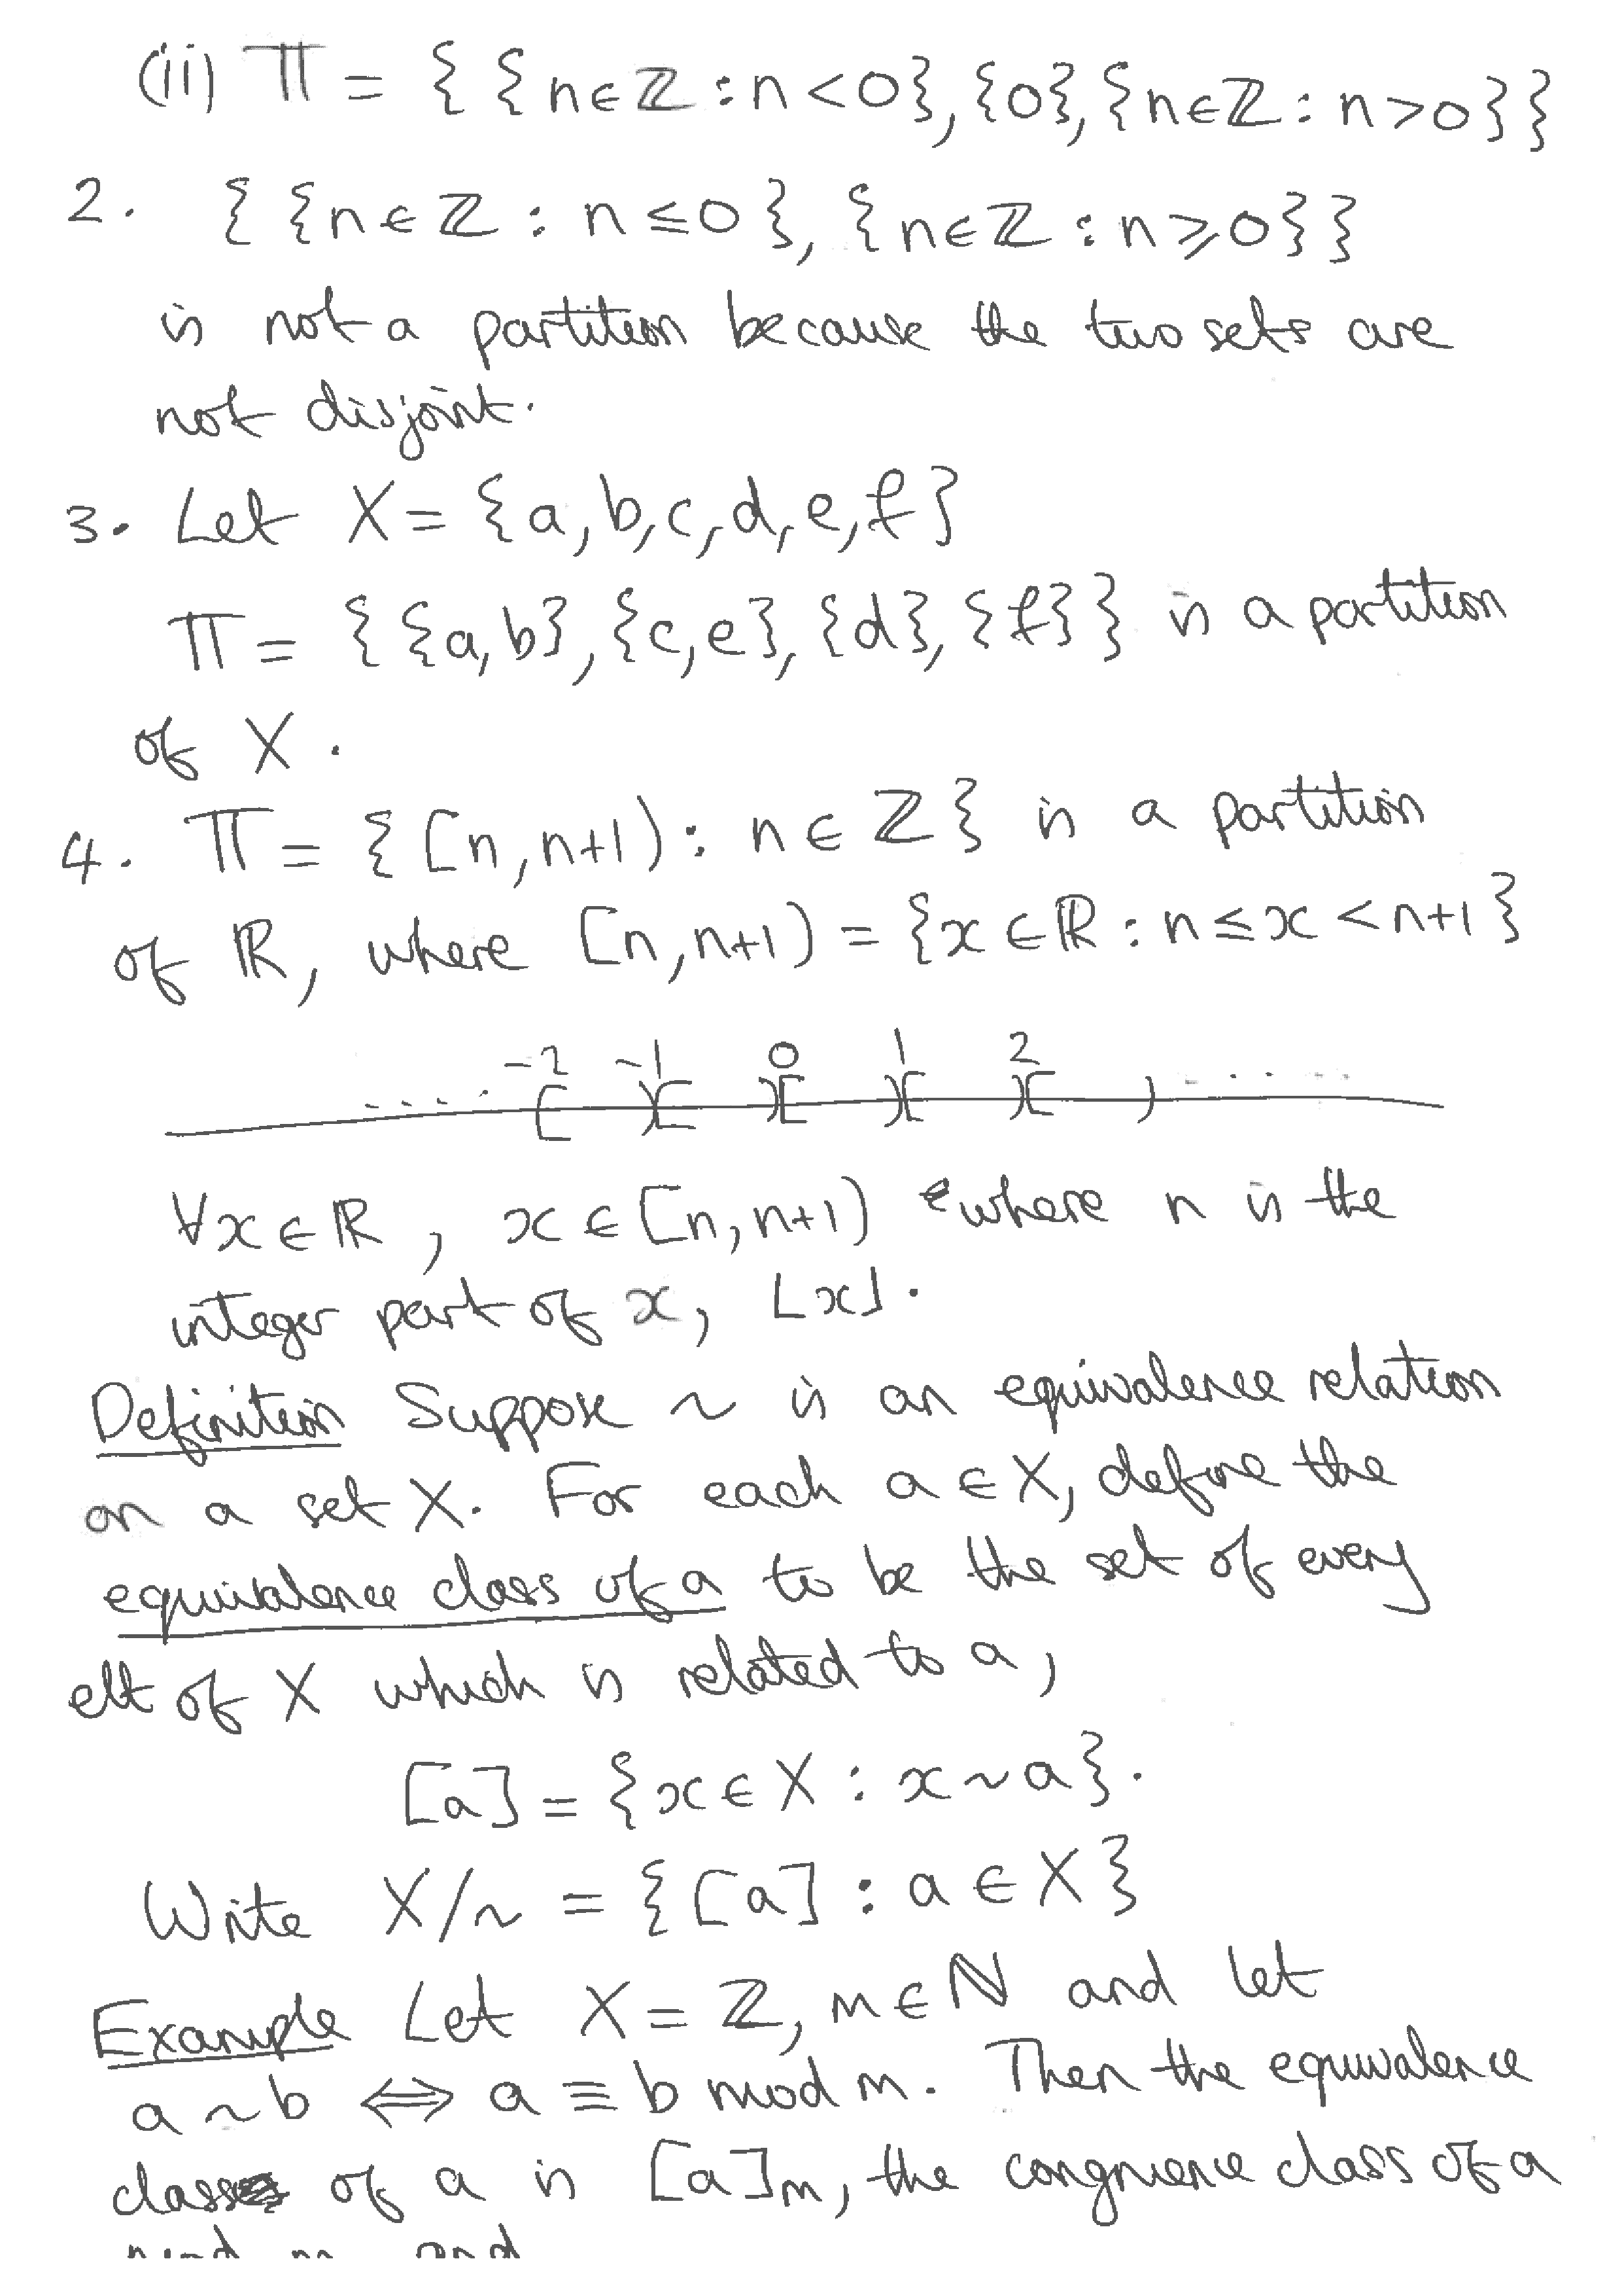 (ii) Π = { {n∈ℤ : n<0}, {0}, {n∈ℤ : n>0}}
2. { {n∈ℤ : n≤0}, {n∈ℤ : n⩾0}}
is not a partition because the two sets are
not disjoint.
3. Let X = {a,b,c,d,e,f}
Π = { {a,b}, {c,e}, {d}, {f}} is a partition
of X.
4. Π = { [n,n+1) : n∈ℤ} is a partition
of ℝ, where [n,n+1) = {x∈ℝ : n≤x<n+1}
-2 -1 0 1 2
.... [ )[ )[ )[ )[ ) .....
∀x∈ℝ, x∈[n,n+1) where n is the
integer part of x, ⌊x⌋.
Definition Suppose ~ is an equivalence relation
on a set X. For each a∈X, define the
equivalence class of a to be the set of every
elt of X which is related to a,
[a] = {x∈X : x~a}.
Write X/~ = {[a] : a∈X}
Example Let X = ℤ, m∈ℕ and let
a~b ⟺ a ≡ b mod m. Then the equivalence
class of a is [a]ₘ, the congruence class of a
mod m and